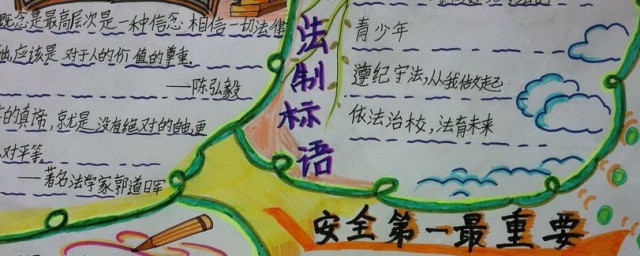 概念是最高层次是一种信念.相信一切法律
应该是对于人的价值的尊重.
——陈弘毅
的真谛,就是没有绝对的自由,更
对平等.
——著名法学家郭道晖
法制标语
青少年
遵纪守法,从我做起
依法治校,法育未来
安全第一最重要